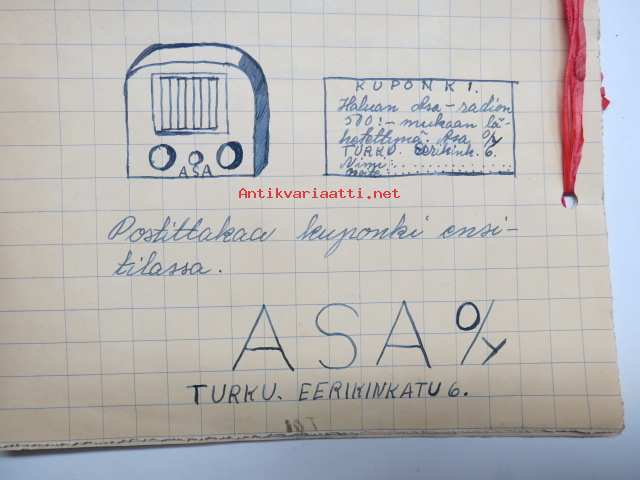 KUPONKI.
Haluan Asa-radion
500:- mukaan lä-
hetettynä. Asa O/Y
TURKU. Eerikink. 6.
Nimi:
Osoite
ASA
Antikvariaatti.net
Postittakaa kuponki ensi-
tilassa.
ASA O/Y
TURKU. EERIKINKATU 6.